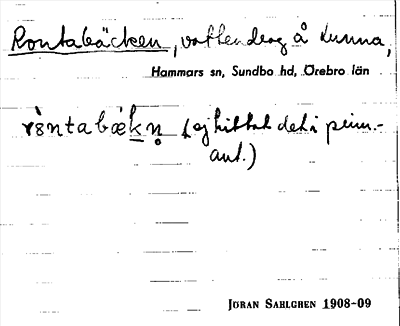 Rontabäcken, vattendrag å Lunna,
Hammars sn, Sundbo hd, Örebro län
(ej hittat det i prim.-
ant.)
JÖRAN SAHLGREN 1908-09